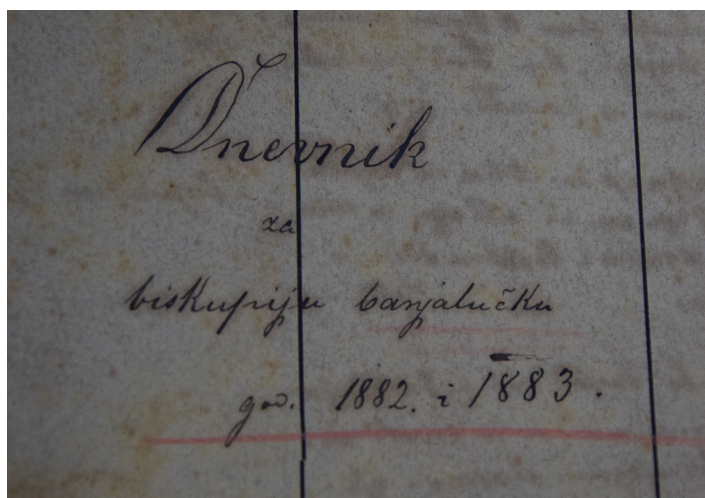 Dnevnik
za
biskupiju banjalučku
god. 1882. i 1883.